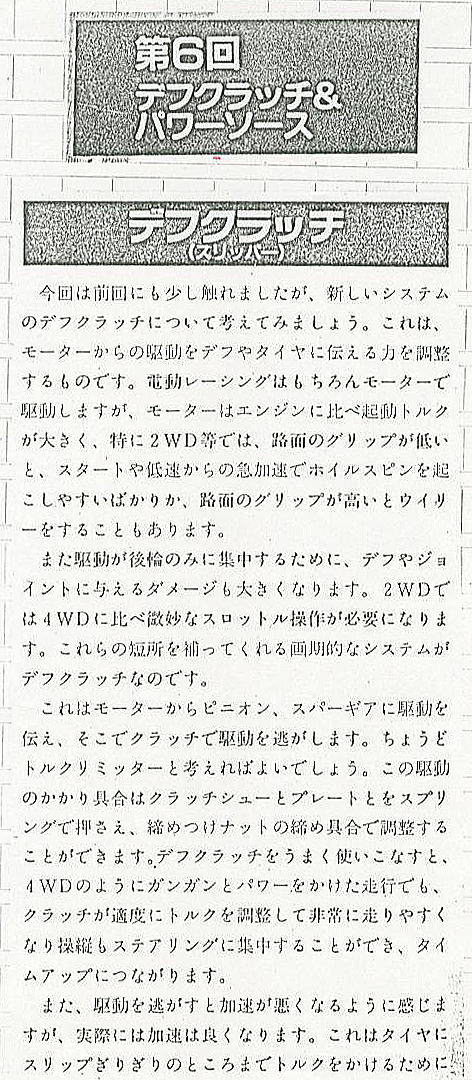 第6回
デフクラッチ&
パワーソース
デフクラッチ
(スリッパー)
今回は前回にも少し触れましたが、新しいシステム
のデフクラッチについて考えてみましょう。これは、
モーターからの駆動をデフやタイヤに伝える力を調整
するものです。電動レーシングはもちろんモーターで
駆動しますが、モーターはエンジンに比べ起動トルク
が大きく、特に2WD等では、路面のグリップが低い
と、スタートや低速からの急加速でホイルスピンを起
こしやすいばかりか、路面のグリップが高いとウイリ
ーをすることもあります。
また駆動が後輪のみに集中するために、デフやジョ
イントに与えるダメージも大きくなります。2WDで
は4WDに比べ微妙なスロットル操作が必要になりま
す。これらの短所を補ってくれる画期的なシステムが
デフクラッチなのです。
これはモーターからピニオン、スパーギアに駆動を
伝え、そこでクラッチで駆動を逃がします。ちょうど
トルクリミッターと考えればよいでしょう。この駆動
のかかり具合はクラッチシューとプレートとをスプリ
ングで押さえ、締めつけナットの締め具合で調整する
ことができます。デフクラッチをうまく使いこなすと、
4WDのようにガンガンとパワーをかけた走行でも、
クラッチが適度にトルクを調整して非常に走りやすく
なり操縦もステアリングに集中することができ、タイ
ムアップにつながります。
また、駆動を逃がすと加速が悪くなるように感じま
すが、実際には加速は良くなります。これはタイヤに
スリップぎりぎりのところまでトルクをかけるために